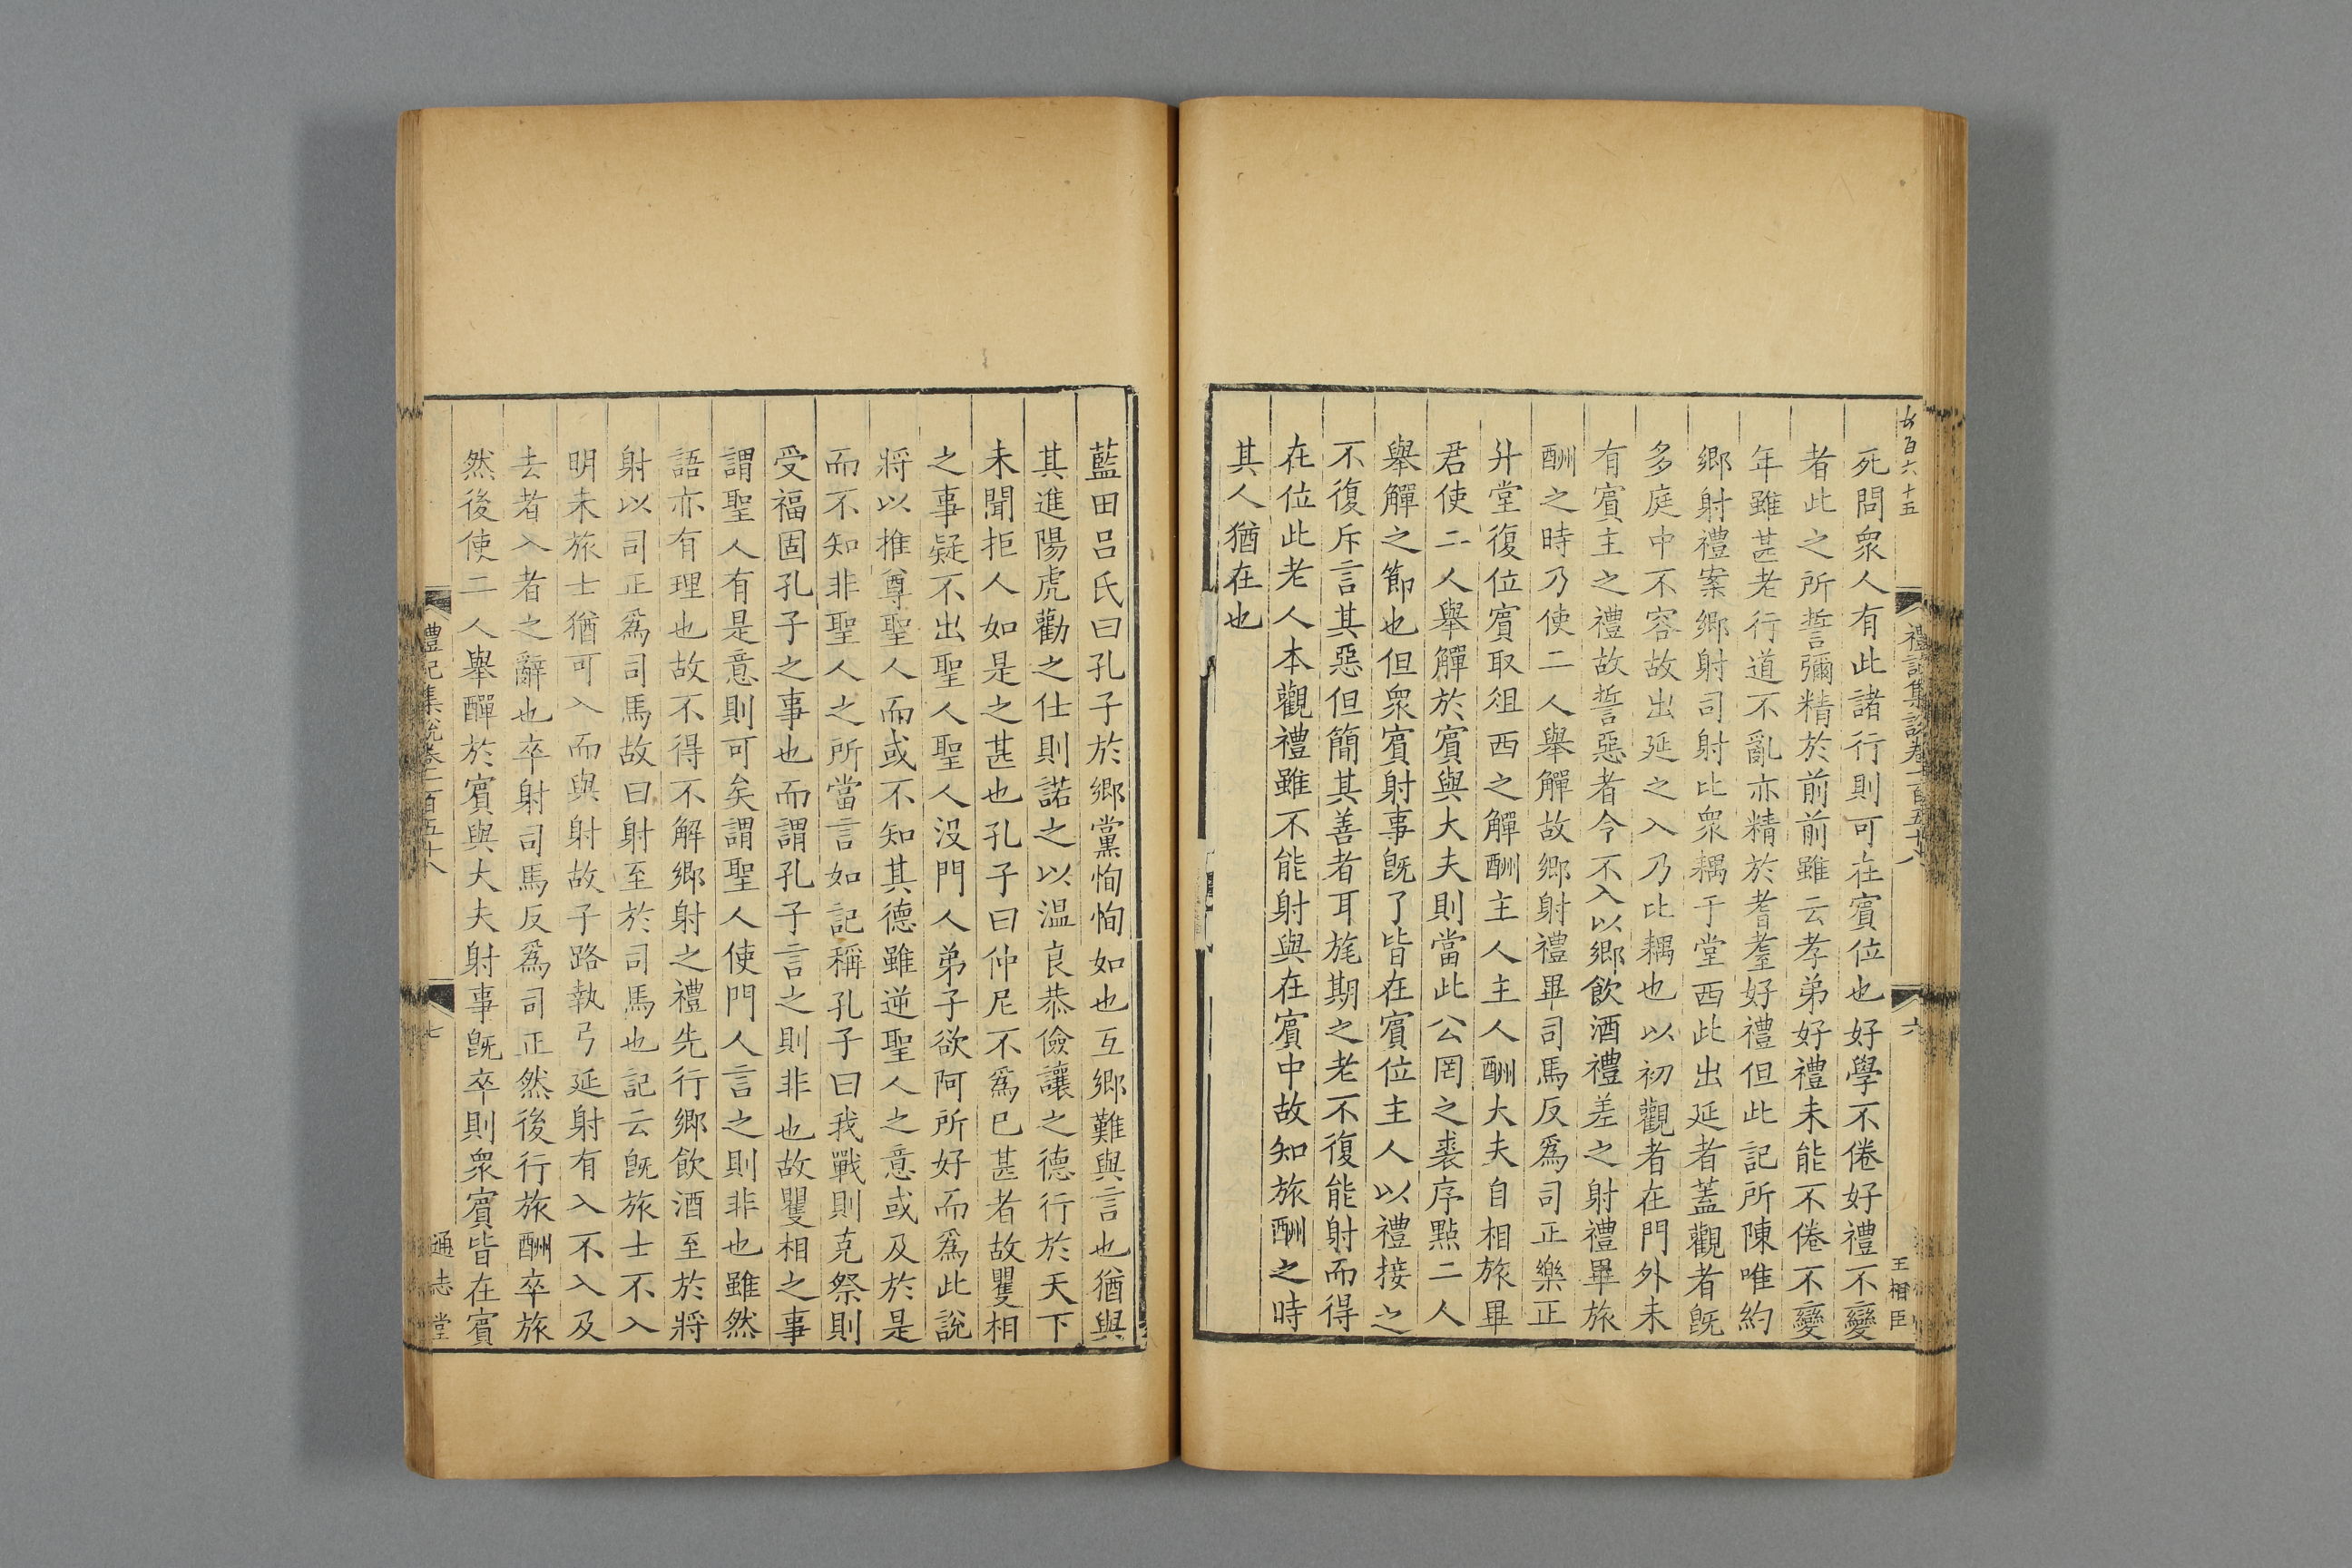 禮記集說卷一百五十八
六
王相臣
死問衆人有此諸行則可在賔位也好學不倦好禮不變
者此之所誓彌精於前前雖云孝弟好禮未能不倦不變
年雖甚老行道不亂亦精於耆耋好禮但此記所陳唯約
鄉射禮案鄉射司射比衆耦于堂西此出延者蓋觀者旣
多庭中不容故出延之入乃比耦也以初觀者在門外未
有賔主之禮故誓惡者今不入以鄉飲酒禮差之射禮畢旅
酬之時乃使二人舉觶故鄉射禮畢司馬反爲司正樂正
升堂復位賔取俎西之觶酬主人主人酬大夫自相旅畢
君使二人舉觶於賔與大夫則當此公罔之裘序點二人
舉觶之節也但衆賔射事旣了皆在賔位主人以禮接之
不復斥言其惡但簡其善者耳旄期之老不復能射而得
在位此老人本觀禮雖不能射與在賔中故知旅酬之時
其人猶在也
藍田呂氏曰孔子於鄉黨恂恂如也互鄉難與言也猶與
其進陽虎勸之仕則諾之以温良恭儉讓之德行於天下
未聞拒人如是之甚也孔子曰仲尼不爲已甚者故矍相
之事疑不出聖人聖人没門人弟子欲阿所好而爲此說
將以推尊聖人而或不知其德雖逆聖人之意或及於是
而不知非聖人之所當言如記稱孔子曰我戰則克祭則
受福固孔子之事也而謂孔子言之則非也故矍相之事
謂聖人有是意則可矣謂聖人使門人言之則非也雖然
語亦有理也故不得不解鄉射之禮先行鄉飲酒至於將
射以司正爲司馬故曰射至於司馬也記云旣旅士不入
明未旅士猶可入而與射故子路執弓延射有入不入及
去者入者之辭也卒射司馬反爲司正然後行旅酬卒旅
然後使二人舉觶於賔與大夫射事旣卒則衆賔皆在賔
禮記集說卷一百五十八
七
通志堂